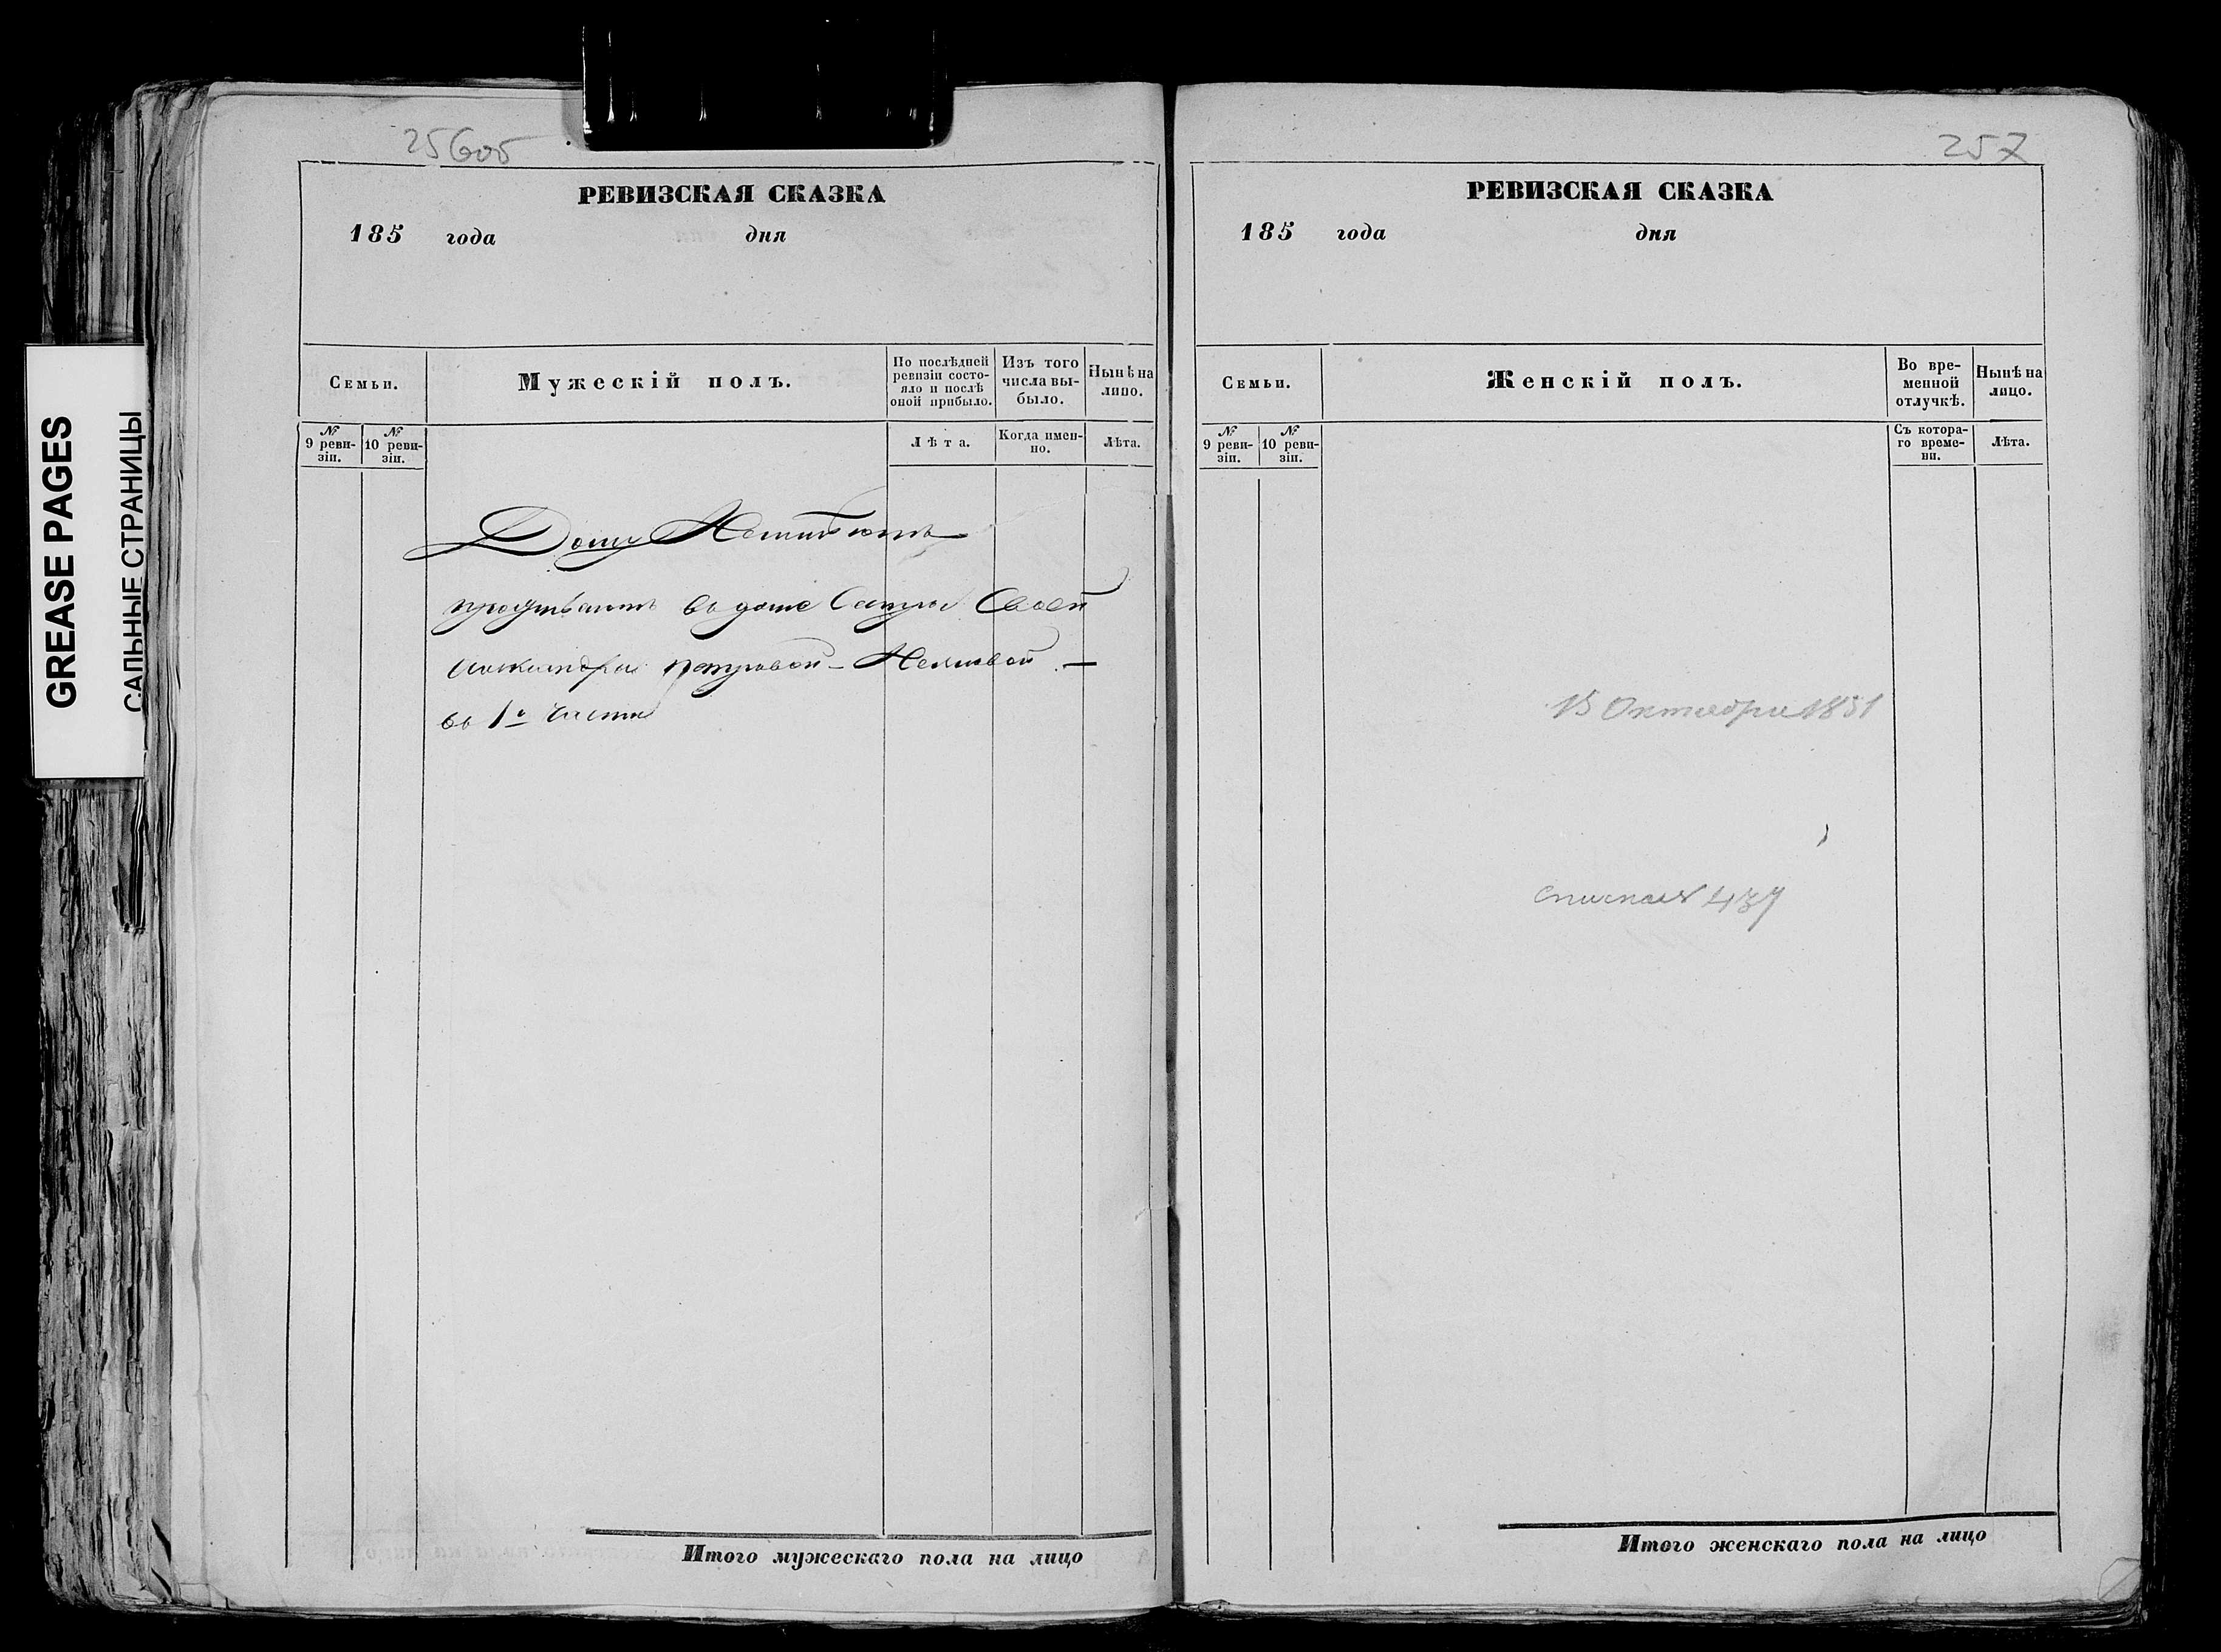 GREASE PAGES
САЛЬНЫЕ СТРАНИЦЫ
256об
РЕВИЗСКАЯ СКАЗКА
185 года дня
Семьи.
Мужескій полъ.
По послѣдней ревизіи состо-
яло и послѣ
оной прибыло.
Изъ того
числа вы-
было.
Нынѣ на
лицо.
№
9 реви-
зіи.
№
10 реви-
зіи.
Лѣта.
Когда имен-
но.
Лѣта.
Дому Неимѣютъ
проживаютъ въ домѣ Сестры Своей
Александры Петровой
въ 1й части
Итого мужескаго пола на лицо
257
РЕВИЗСКАЯ СКАЗКА
185 года дня
Семьи.
Женскій полъ.
Во вре-
менной
отлучкѣ.
Нынѣ на
лицо.
№
9 реви-
зіи.
№
10 реви-
зіи.
Съ котора-
го време-
ни.
Лѣта.
15 Октября 1851
437
Итого женскаго пола на лицо